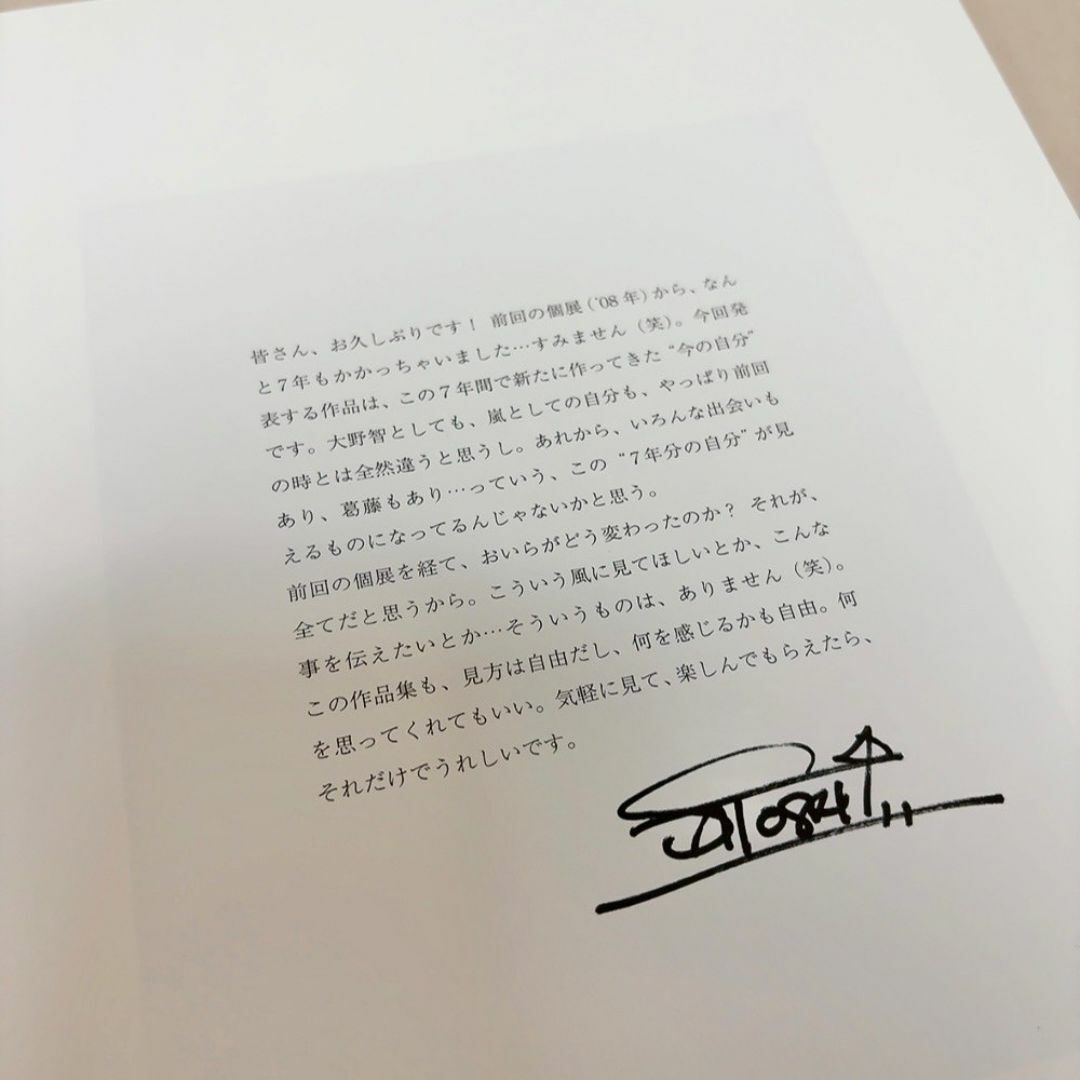 皆さん、お久しぶりです！ 前回の個展（'08年）から、なん
と7年もかかっちゃいました…すみません（笑）。今回発
表する作品は、この7年間で新たに作ってきた“今の自分”
です。大野智としても、嵐としての自分も、やっぱり前回
の時とは全然違うと思うし。あれから、いろんな出会いも
あり、葛藤もあり…っていう、この“7年分の自分”が見
えるものになってるんじゃないかと思う。
前回の個展を経て、おいらがどう変わったのか？ それが、
全てだと思うから。こういう風に見てほしいとか、こんな
事を伝えたいとか…そういうものは、ありません（笑）。
この作品集も、見方は自由だし、何を感じるかも自由。何
を思ってくれてもいい。気軽に見て、楽しんでもらえたら、
それだけでうれしいです。